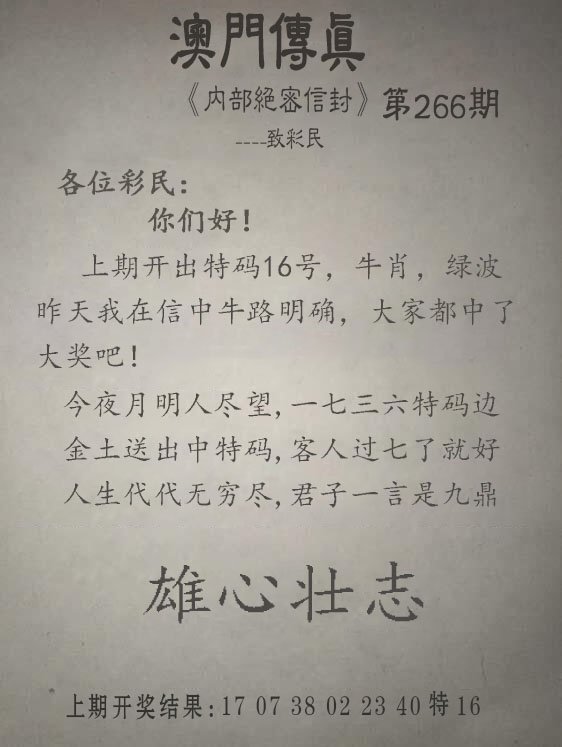 澳門傳真
《内部絕密信封》第266期
----致彩民
各位彩民：
你们好！
上期开出特码16号，牛肖，绿波
昨天我在信中牛路明确，大家都中了
大奖吧！
今夜月明人尽望,一七三六特码边
金土送出中特码,客人过七了就好
人生代代无穷尽,君子一言是九鼎
雄心壮志
上期开奖结果:17 07 38 02 23 40 特 16